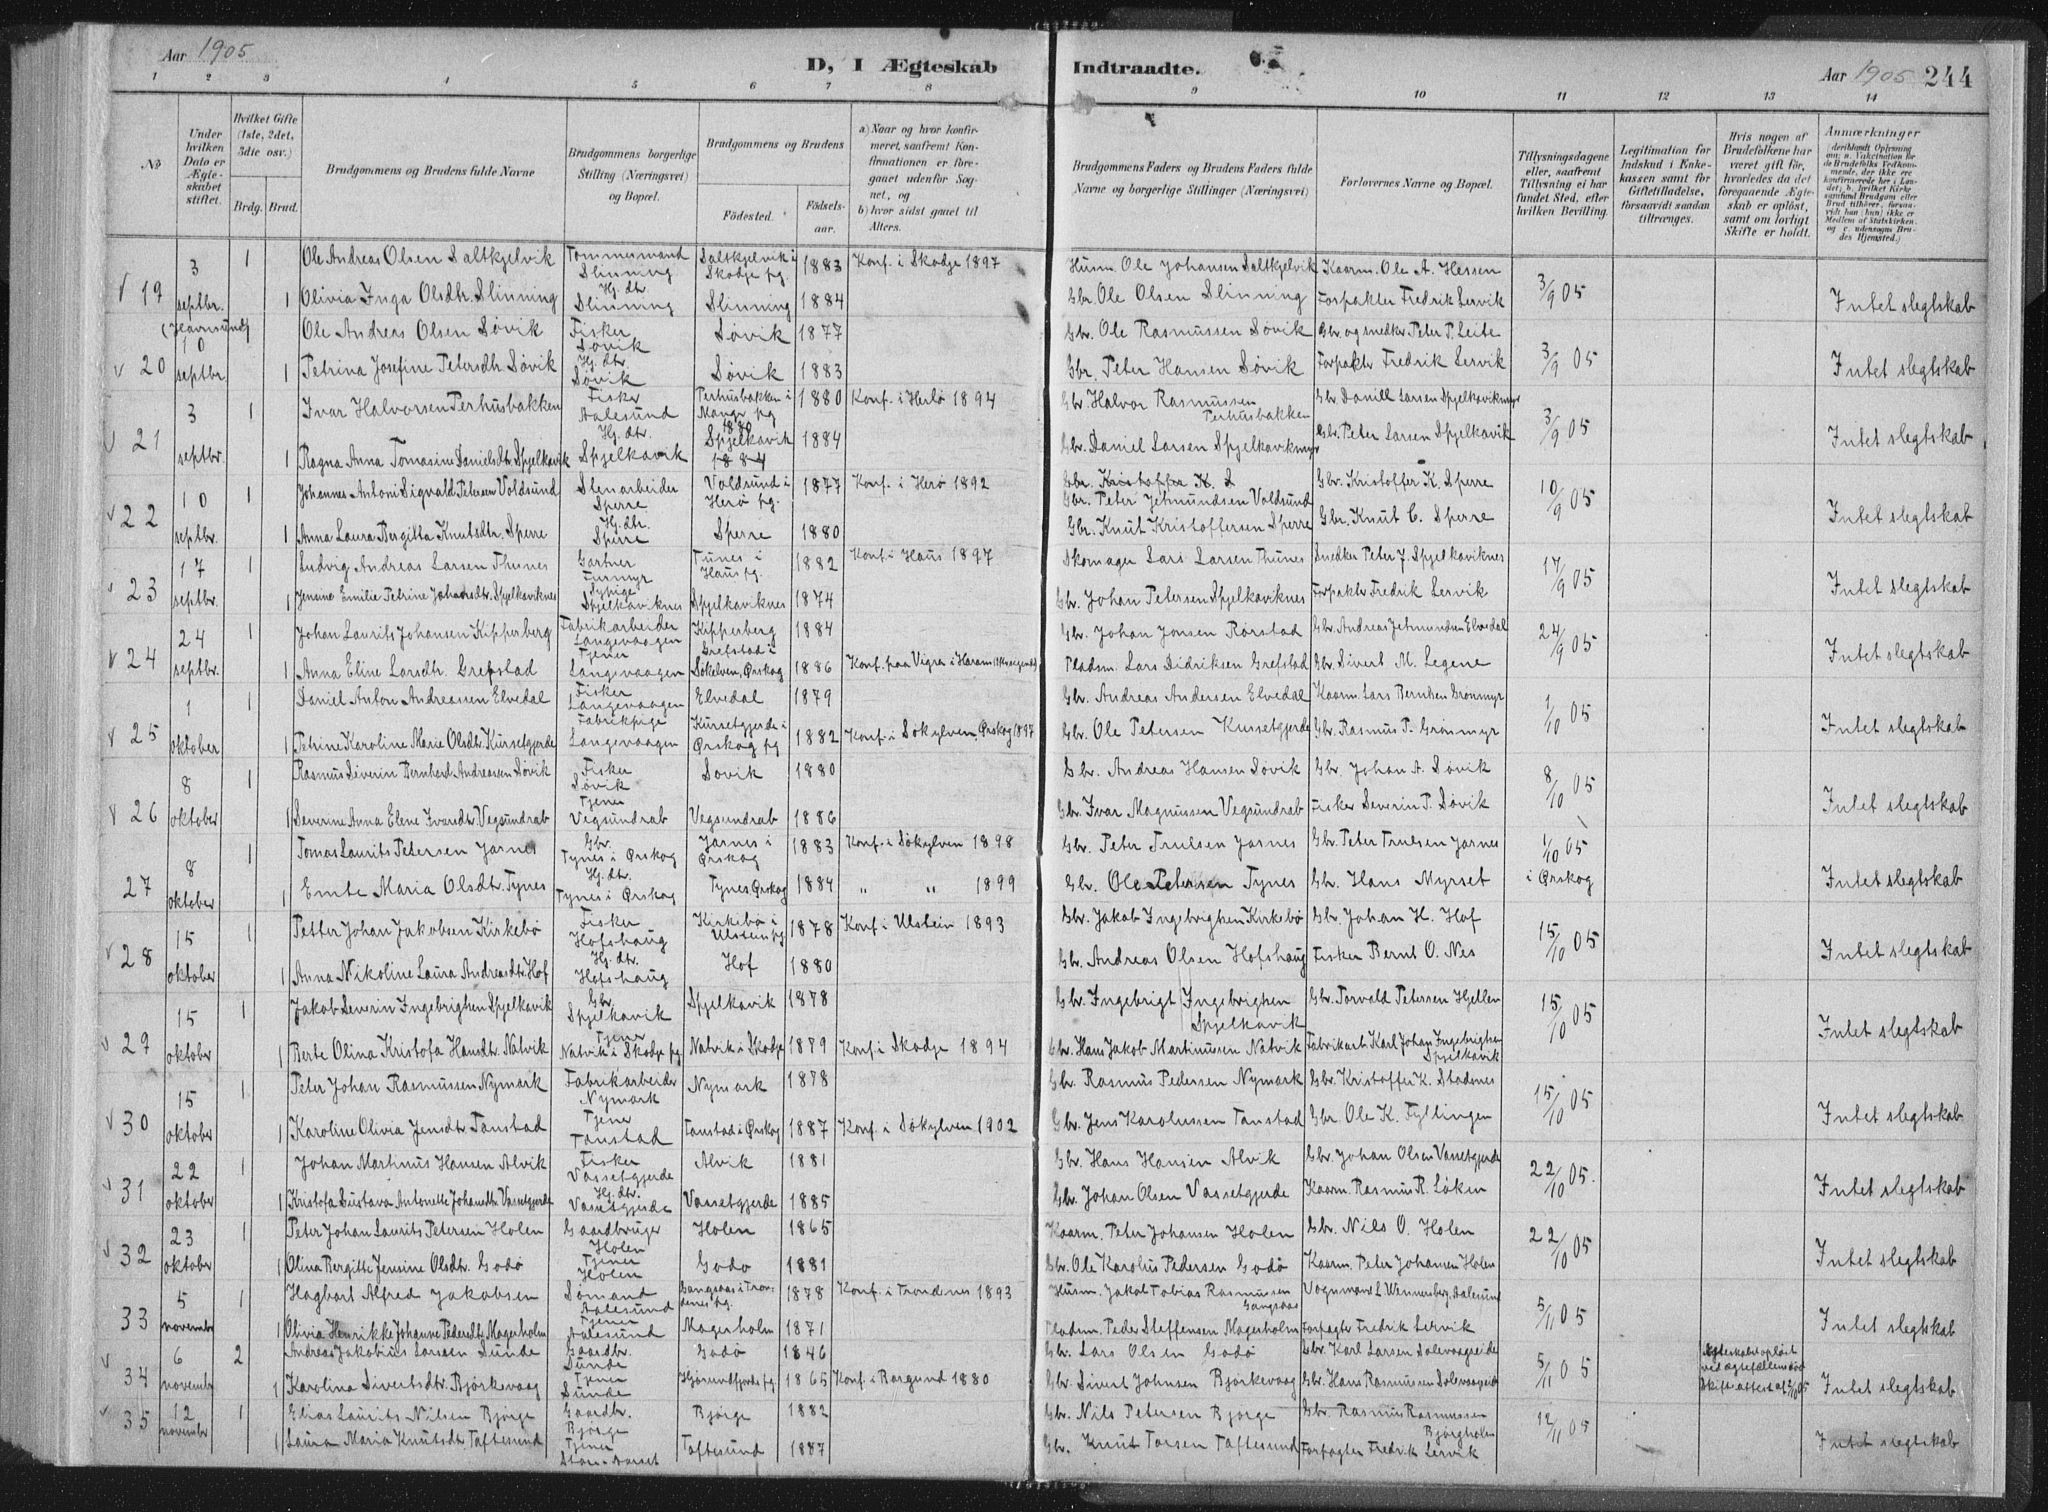 Aar 1905
D, I Ægteskab Indtraadte.
Aar 1905 244
1 2 3 4 5 6 7 8 9 10 11 12 13 14
No
Under hvilken Dato er Ægteskabet stiftet.
Hvilket Gifte (1ste, 2det, 3die osv.)
Brdg. Brud.
Brudgommens og Brudens fulde Navne
Brudgommens borgerlige Stilling (Næringsvei) og Bopæl.
Brudgommens og Brudens
Fødested. Fødselsaar.
a) Naar og hvor konfirmeret, saafremt Konfirmationen er foregaaet udenfor Sognet, og
b) hvor sidst gaaet til Alters.
Brudgommens Faders og Brudens Faders fulde Navne og borgerlige Stillinger (Næringsvei)
Forlovernes Navne og Bopæl.
Tillysningsdagene eller, saafremt Tillysning ei har fundet Sted, efter hvilken Bevilling.
Legitimation for Indskud i Enkekassen samt for Giftetilladelse, forsaavidt saadan tiltrænges.
Hvis nogen af Brudefolkene har været gift før, hvorledes da det foregaaende Ægteskab er opløst, samt om lovligt Skifte er holdt.
Anmærkninger
(deriblandt Oplysning om: a. Vakcination for de Brudefolks Vedkommende, der ikke ere konfirmerede her i Landet; b. hvilket Kirkesamfund Brudgom eller Brud tilhører, forsaavidt han (hun) ikke er Medlem af Statskirken, og c. udensogns Brudes Hjemsted.)
19 3 septbr. 1 Ole Andreas Olsen Saltkjelvik Tømmermand Slinning Saltkjelvik i Skodje pg. 1883 Konf. i Skodje 1897 Husm. Ole Johansen Saltkjelvik Kaarm. Ole A. Hessen 3/9 05
1 Olivia Inga Olsdtr. Slinning Hj. dtr. Slinning Slinning 1884 Gbr. Ole Olsen Slinning Forpakter Fredrik Lervik Intet slegtskab
(Havnsund)
20 10 septbr. Ole Andreas Olsen Søvik Fisker Søvik Søvik 1877 Gbr. Ole Rasmussen Søvik Gbr og snedker Peter P. Leite 3/9 05
1 Petrina Josefine Petersdtr Søvik Hj. dtr. Søvik Søvik 1883 Gbr. Peter Hansen Søvik Forpakter Fredrik Lervik Intet slegtskab
21 3 septbr. 1 Ivar Halvorsen Perhusbakken Fisker Aalesund Perhusbakken i Manger pg 1880 1880 Konf. i Herlø 1894 Gbr. Halvor Rasmussen Perhusbakken Gbr. Daniel Larsen Spjelkavikmyr 3/9 05
1 Ragna Anna Tomasine Danielsdtr. Spjelkavik Hj. dtr. Spjelkavik Spjelkavik 1884 1884 Gbr. Daniel Larsen Spjelkavikmyr Gbr. Peter Larsen Spjelkavik Intet slegtskab
22 10 septbr. 1 Johannes Antoni Sigvald Petersen Voldsund Stenarbeider Sperre Voldsund i Herø pg. 1877 Konf. i Herø 1892 Gbr. Kristoffer K. S Gbr. Peter Jetmundsen Voldsund Gbr. Kristoffer K. Sperre 10/9 05
1 Anna Laura Bergitta Knutsdtr. Sperre Hj. dtr. Sperre Sperre 1880 Gbr. Knut Kristoffersen Sperre Gbr. Knut C. Sperre Intet slegtskab
23 17 septbr. 1 Ludvig Andreas Larsen Thunes Gartner Furmyr Tunes i Haus pg. 1882 Konf. i Haus 1897 Skomager Lars Larsen Thunes Snedker Peter J. Spjelkaviknes 17/9 05
1 Jensine Emilie Petrine Johansdtr. Spjelkaviknes Sypige Spjelkaviknes Spjelkaviknes 1874 Gbr. Johan Petersen Spjelkaviknes Forpakter Fredrik Lervik Intet slegtskab
24 24 septbr. 1 Johan Laurits Johansen Kipperberg Fabrikarbeider Langevaagen Kipperberg 1884 Gbr. Johan Jonsen Rørstad Gbr. Andreas Jetmundsen Elvedal 24/9 05
1 Anna Eline Larsdtr. Grepstad Tjener Langevaagen Grefstad i Søkelven, Ørskog 1886 Konf. paa Vigra i Haram Pladsm. Lars Didriksen Grefstad Gbr. Sivert M. Legene Intet slegtskab
25 1 oktober 1 Daniel Anton Andreassen Elvedal Fisker Langevaagen Elvedal 1879 Gbr. Andreas Andersen Elvedal Kaarm. Lars Berntsen Grønmyr 1/10 05
1 Petrine Karoline Marie Olsdtr Kursetgjerde Fabrikpige Langevaagen Kursetgjerde i Ørskog pg 1882 Konf. i Søkylven, Ørskog 1897 Gbr. Ole Petersen Kursetgjerde Gbr. Rasmus P. Grønmyr Intet slegtskab
26 8 oktober 1 Rasmus Severin Bernhard Andreassen Søvik Fisker Søvik Søvik 1880 Gbr. Andreas Hansen Søvik Gbr. Johan A. Søvik 8/10 05
1 Severine Anna Elene Ivarsdtr Vegsundrab Tjener Vegsundrab Vegsundrab 1886 Gbr Ivar Magnussen Vegsundrab Fisker Severin P. Søvik Intet slegtskab
27 8 oktober 1 Tomas Laurits Petersen Jarnes Gbr. Tynes i Ørskog Jarnes i Ørskog 1883 Konf. i Søkylven 1898 Gbr. Peter Trulsen Jarnes Gbr. Peter Trulsen Jarnes 1/10 05 i Ørskog
1 Emte Maria Olsdtr. Tynes Hj. dtr. Tynes i Ørskog Tynes Ørskog 1884 „ „ 1899 Gbr. Ole Petersen Tynes Gbr. Hans Myrset Intet slegtskab
28 15 oktober 1 Petter Johan Jakobsen Kirkebø Fisker Hofshaug Kirkebø i Ulstein pg 1878 Konf. i Ulstein 1893 Gbr. Jakob Ingebrigtsen Kirkebø Gbr. Johan H. Hof 15/10 05
1 Anna Nikoline Laura Andreasdtr. Hof Hj. dtr. Hofshaug Hof 1880 Gbr. Andreas Olsen Hofshaug Fisker Bernt O. Nes Intet slegtskab
29 15 oktober 1 Jakob Severin Ingebrigtsen Spjelkavik Gbr. Spjelkavik Spjelkavik 1878 Gbr. Ingebrigt Ingebrigtsen Spjelkavik Gbr. Torvald Petersen Hjellen 15/10 05
1 Berte Olina Kristofa Hansdtr. Natvik Tjener Natvik i Skodje pg Natvik i Skodje 1879 Konf. i Skodje 1894 Gbr. Hans Jakob Martinussen Natvik Fabrikarb. Karl Johan Ingebrigtsen Spjelkavik Intet slegtskab
30 15 oktober 1 Peter Johan Rasmussen Nymark Fabrikarbeider Nymark Nymark 1878 Gbr. Rasmus Pedersen Nymark Gbr. Kristoffer K. Stadsnes 15/10 05
1 Karoline Olivia Jensdtr Tanstad Tjener Tanstad Tanstad i Ørskog 1887 Konf. i Søkylven 1902 Gbr. Jens Karolussen Tanstad Gbr. Ole K. Fyllingen Intet slegtskab
31 22 oktober 1 Johan Martinus Hansen Alvik Fisker Vassetgjerde Alvik 1881 Gbr. Hans Hansen Alvik Gbr. Johan Olsen Vassetgjerde 22/10 05.
1 Kristofa Gustava Antonette Johansdtr Vassetgjerde Hj. dtr. Vassetgjerde Vassetgjerde 1885 Gbr. Johan Olsen Vassetgjerde Kaarm. Rasmus R. Løken Intet slegtskab
32 23 oktober 1 Peter Johan Laurits Petersen Holen Gaardbruger Holen Holen 1865 Kaarm. Peter Johansen Holen Gbr. Nils O. Holen 22/10 05
1 Olina Bergitte Jensine Olsdtr. Godø Tjener Holen Godø 1881 Gbr. Ole Karolus Pedersen Godø Kaarm. Peter Johansen Holen Intet slegtskab
33 5 novembr 1 Hagbart Alfred Jakobsen Sømand Aalesund Gangsaas i Trondenes pg. 1878 Konf. i Trondenes 1893 Husm. Jakob Tobias Rasmussen Gangsaas Vognmand L Wennersberg, Aalesund 5/11 05
1 Olivia Henrikke Johanne Pedersdtr Magerholm Tjener Aalesund Magerholm 1871 Pladsm. Peder Steffensen Magerholm Forpagter Fredrik Lervik Intet slegtskab
34 6 novembr 2 Andreas Jakobius Larssen Sunde Gaardbr. Sunde Godø 1846 Gbr. Lars Olsen Godø Gbr. Karl Larsen Solevaagseide 5/11 05 Egteskabet opløst ved egtefællens død Skifteattest af 2/11 05
1 Karolina Sivertsdtr. Bjørkevaag Tjener Sunde Hjørundfjords pg. 1865 Konf. i Borgund 1880 Gbr. Sivert Johnsen Bjørkevaag Gbr. Hans Rasmussen Solevaagseide Intet slegtskab
35 12 novembr 1 Elias Laurits Nilsen Bjørge Gaardbr. Bjørge Bjørge 1882 Gbr. Nils Petersen Bjørge Gbr. Rasmus Rasmussen Bjørgholm 12/11 05
1 Laura Maria Knutsdtr Taftesund Tjener Taftesund 1877 Gbr. Knut Torsen Taftesund Forpagter Fredrik Lervik Intet slegtskab